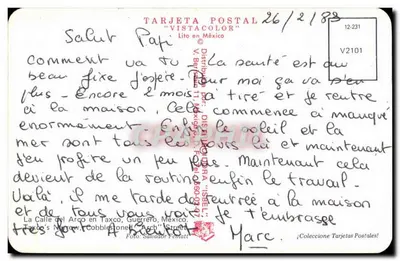 TARJETA POSTAL
"VISTACOLOR"
Lito en México
26/2/83
12-231
V2101
Salut Papi
Comment va tu. La santé est au
beau fixe j'espère. Pour moi ça va s'en
plus. Encore 2 mois à tiré et je rentre
à la maison. Cela commence à manqué
enormément. Enfin le soleil et la
mer sont tous les jours là et maintenant
j'en profite un peu plus. Maintenant cela
devient de la routine enfin le travail.
Voilà, il me tarde de rentrée à la maison
et de tous vous voir. Je t'embrasse
très fort. A Bientot
Marc.
La Calle del Arco en Taxco, Guerrero, México.
Taxco's Narrow Cobblestoned "Arch" Street
¡Coleccione Tarjetas Postales!